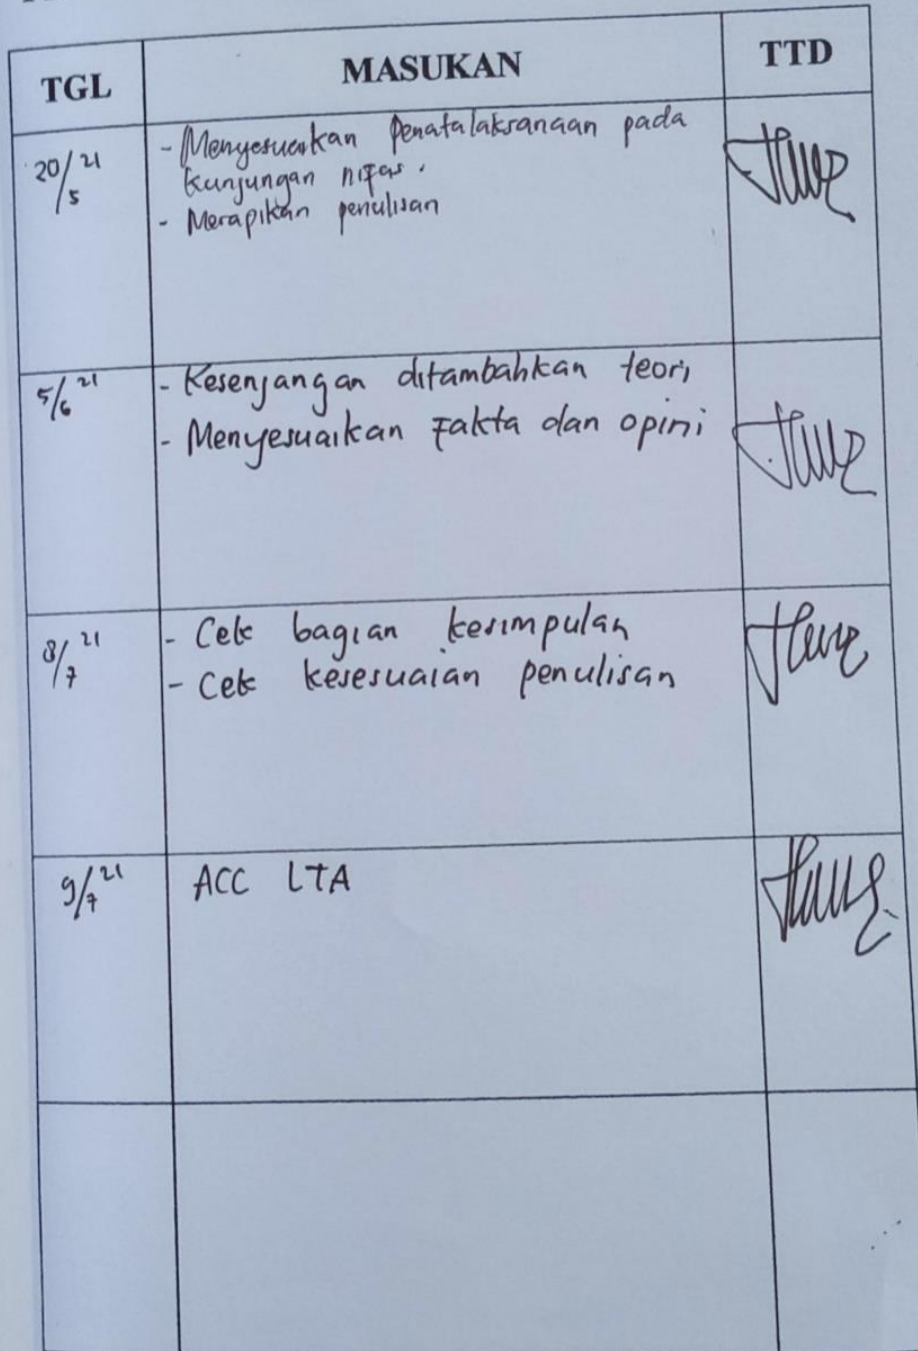 TGL MASUKAN TTD
20/5 21
- Menyesuaikan Penatalaksanaan pada
kunjungan nifas.
- Merapikan penulisan
5/6 21
- Kesenjangan ditambahkan teori
- Menyesuaikan Fakta dan opini
8/7 21
- Cek bagian kesimpulan
- Cek kesesuaian penulisan
9/7 21
ACC LTA